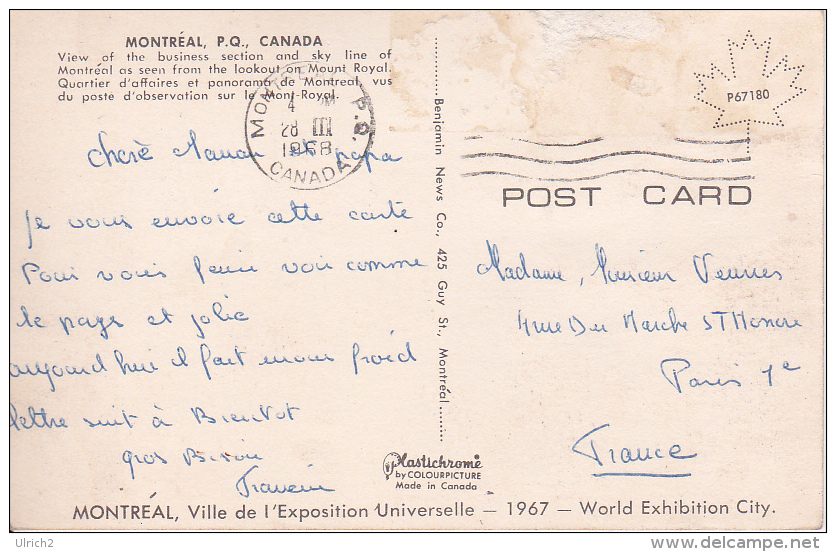 MONTRÉAL, P.Q., CANADA
View of the business section and sky line of
Montréal as seen from the lookout on Mount Royal.
Quartier d'affaires et panorama de Montréal, vus
du poste d'observation sur le Mont-Royal.
MONTREAL P.Q.
4 PM
28 III
1968
CANADA
P67180
POST CARD
cheré Maman et papa
je vous envoie cette carte
Pour vous faire voir comme
le pays et jolie
aujourd hui il fait moin froid
lettre suit à Bientot
gros
Benjamin News Co., 425 Guy St., Montréal
Madame, Monsieur
4 rue Du Marche ST Honore
Paris 1e
France
Plastichrome
by COLOURPICTURE
Made in Canada
MONTRÉAL, Ville de l'Exposition Universelle — 1967 — World Exhibition City.
Ulrich2
www.delcampe.net